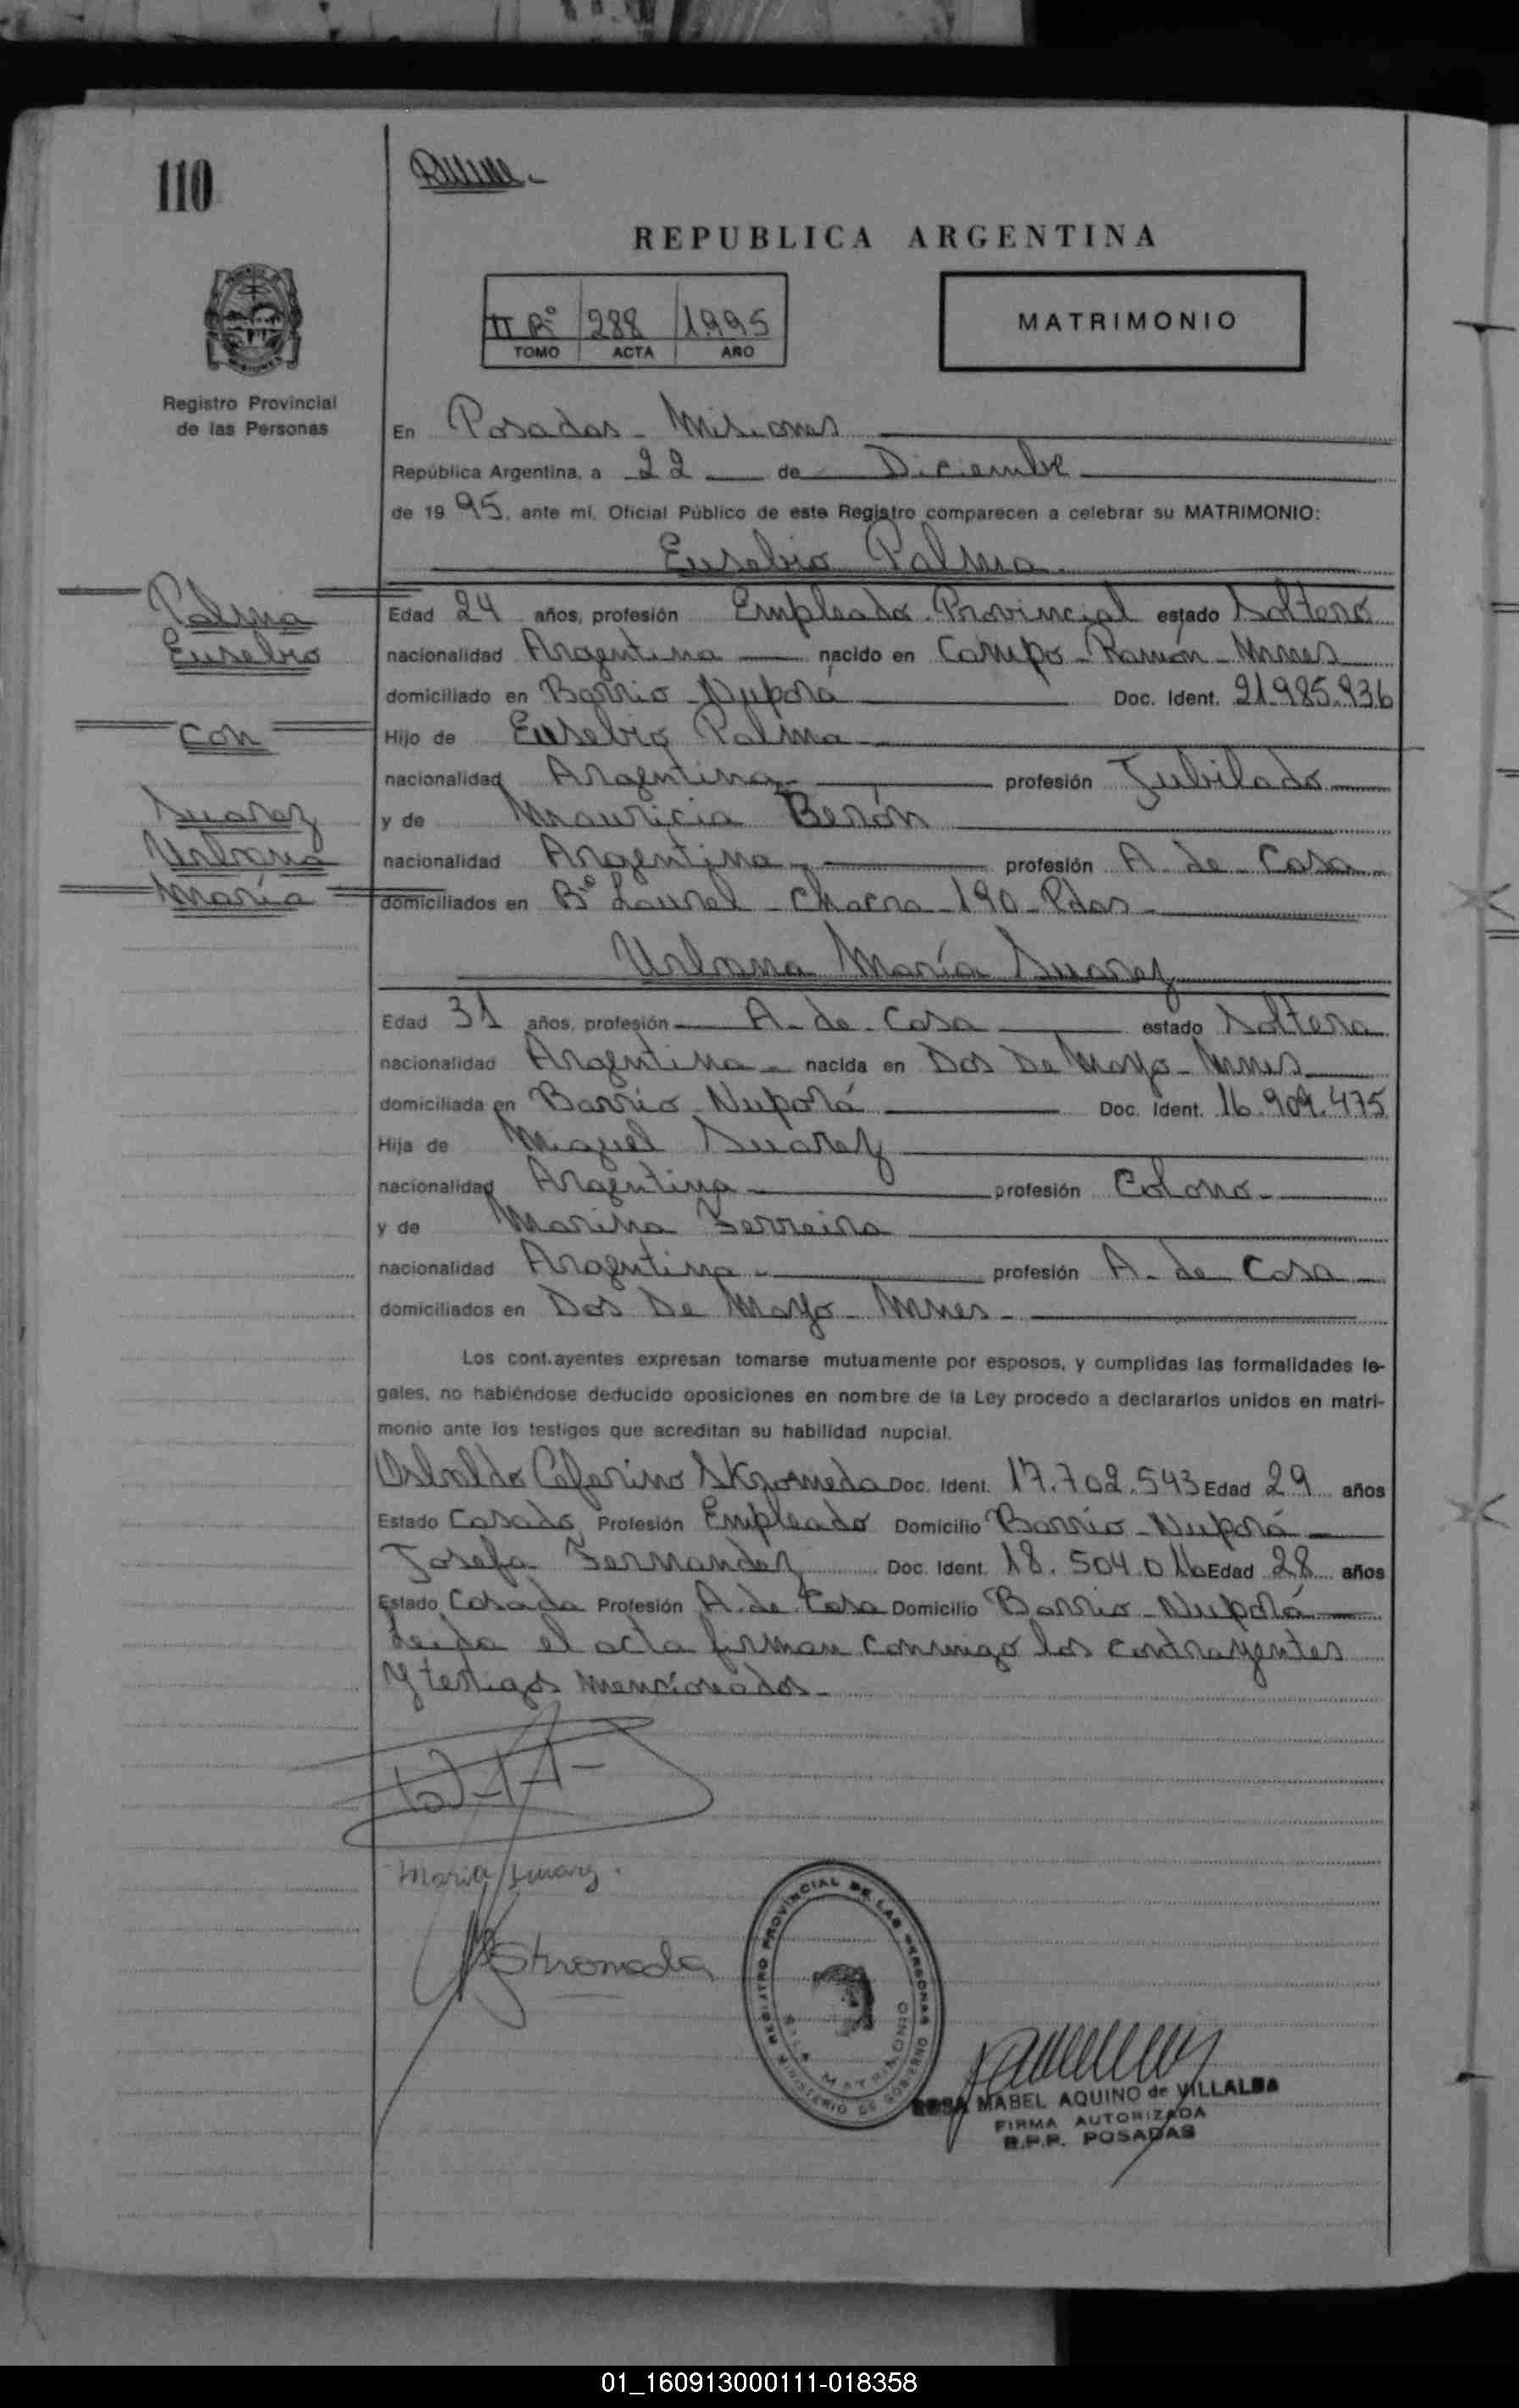 110
REPUBLICA ARGENTINA
II Bº 288 1995
TOMO ACTA AÑO
MATRIMONIO
MISIONES
Registro Provincial
de las Personas
En Posadas - Misiones
República Argentina, a 22 de Diciembre
de 1995, ante mí, Oficial Público de este Registro comparecen a celebrar su MATRIMONIO:
Eusebio Palma
Palma
Eusebio
con
Suarez
Urbana
María
Edad 24 años, profesión Empleado Provincial estado Soltero
nacionalidad Argentina nacido en Campo - Ramón - Mnes
domiciliado en Barrio Ñuporá Doc. Ident. 21.985.936
Hijo de Eusebio Palma
nacionalidad Argentina profesión Jubilado
y de Mauricia Berón
nacionalidad Argentina profesión A. de Casa
domiciliados en Bº Laurel - Chacra - 190 - Pdas
Urbana María Suarez
Edad 31 años, profesión A. de Casa estado Soltera
nacionalidad Argentina nacida en Dos De Mayo - Mnes
domiciliada en Barrio Ñuporá Doc. Ident. 16.909.475
Hija de Miguel Suarez
nacionalidad Argentina profesión Colono
y de Marina Ferreira
nacionalidad Argentina profesión A. de Casa
domiciliados en Dos De Mayo - Mnes
Los cont.ayentes expresan tomarse mutuamente por esposos, y cumplidas las formalidades le-
gales, no habiéndose deducido oposiciones en nombre de la Ley procedo a declararlos unidos en matri-
monio ante los testigos que acreditan su habilidad nupcial.
Osvaldo Ceferino Skromeda Doc. Ident. 17.702.543 Edad 29 años
Estado Casado Profesión Empleado Domicilio Barrio - Ñuporá
Josefa Fernandez Doc. Ident. 18.504.016 Edad 28 años
Estado Casada Profesión A. de Casa Domicilio Barrio - Ñuporá
Leída el acta firman conmigo los contrayentes
y testigos mencionados.
Maria Suarez.
Skromeda
REGISTRO PROVINCIAL DE LAS PERSONAS
MINISTERIO DE GOBIERNO
MATRIMONIO
ROSA MABEL AQUINO de VILLALBA
FIRMA AUTORIZADA
R.P.P. POSADAS
01_160913000111-018358